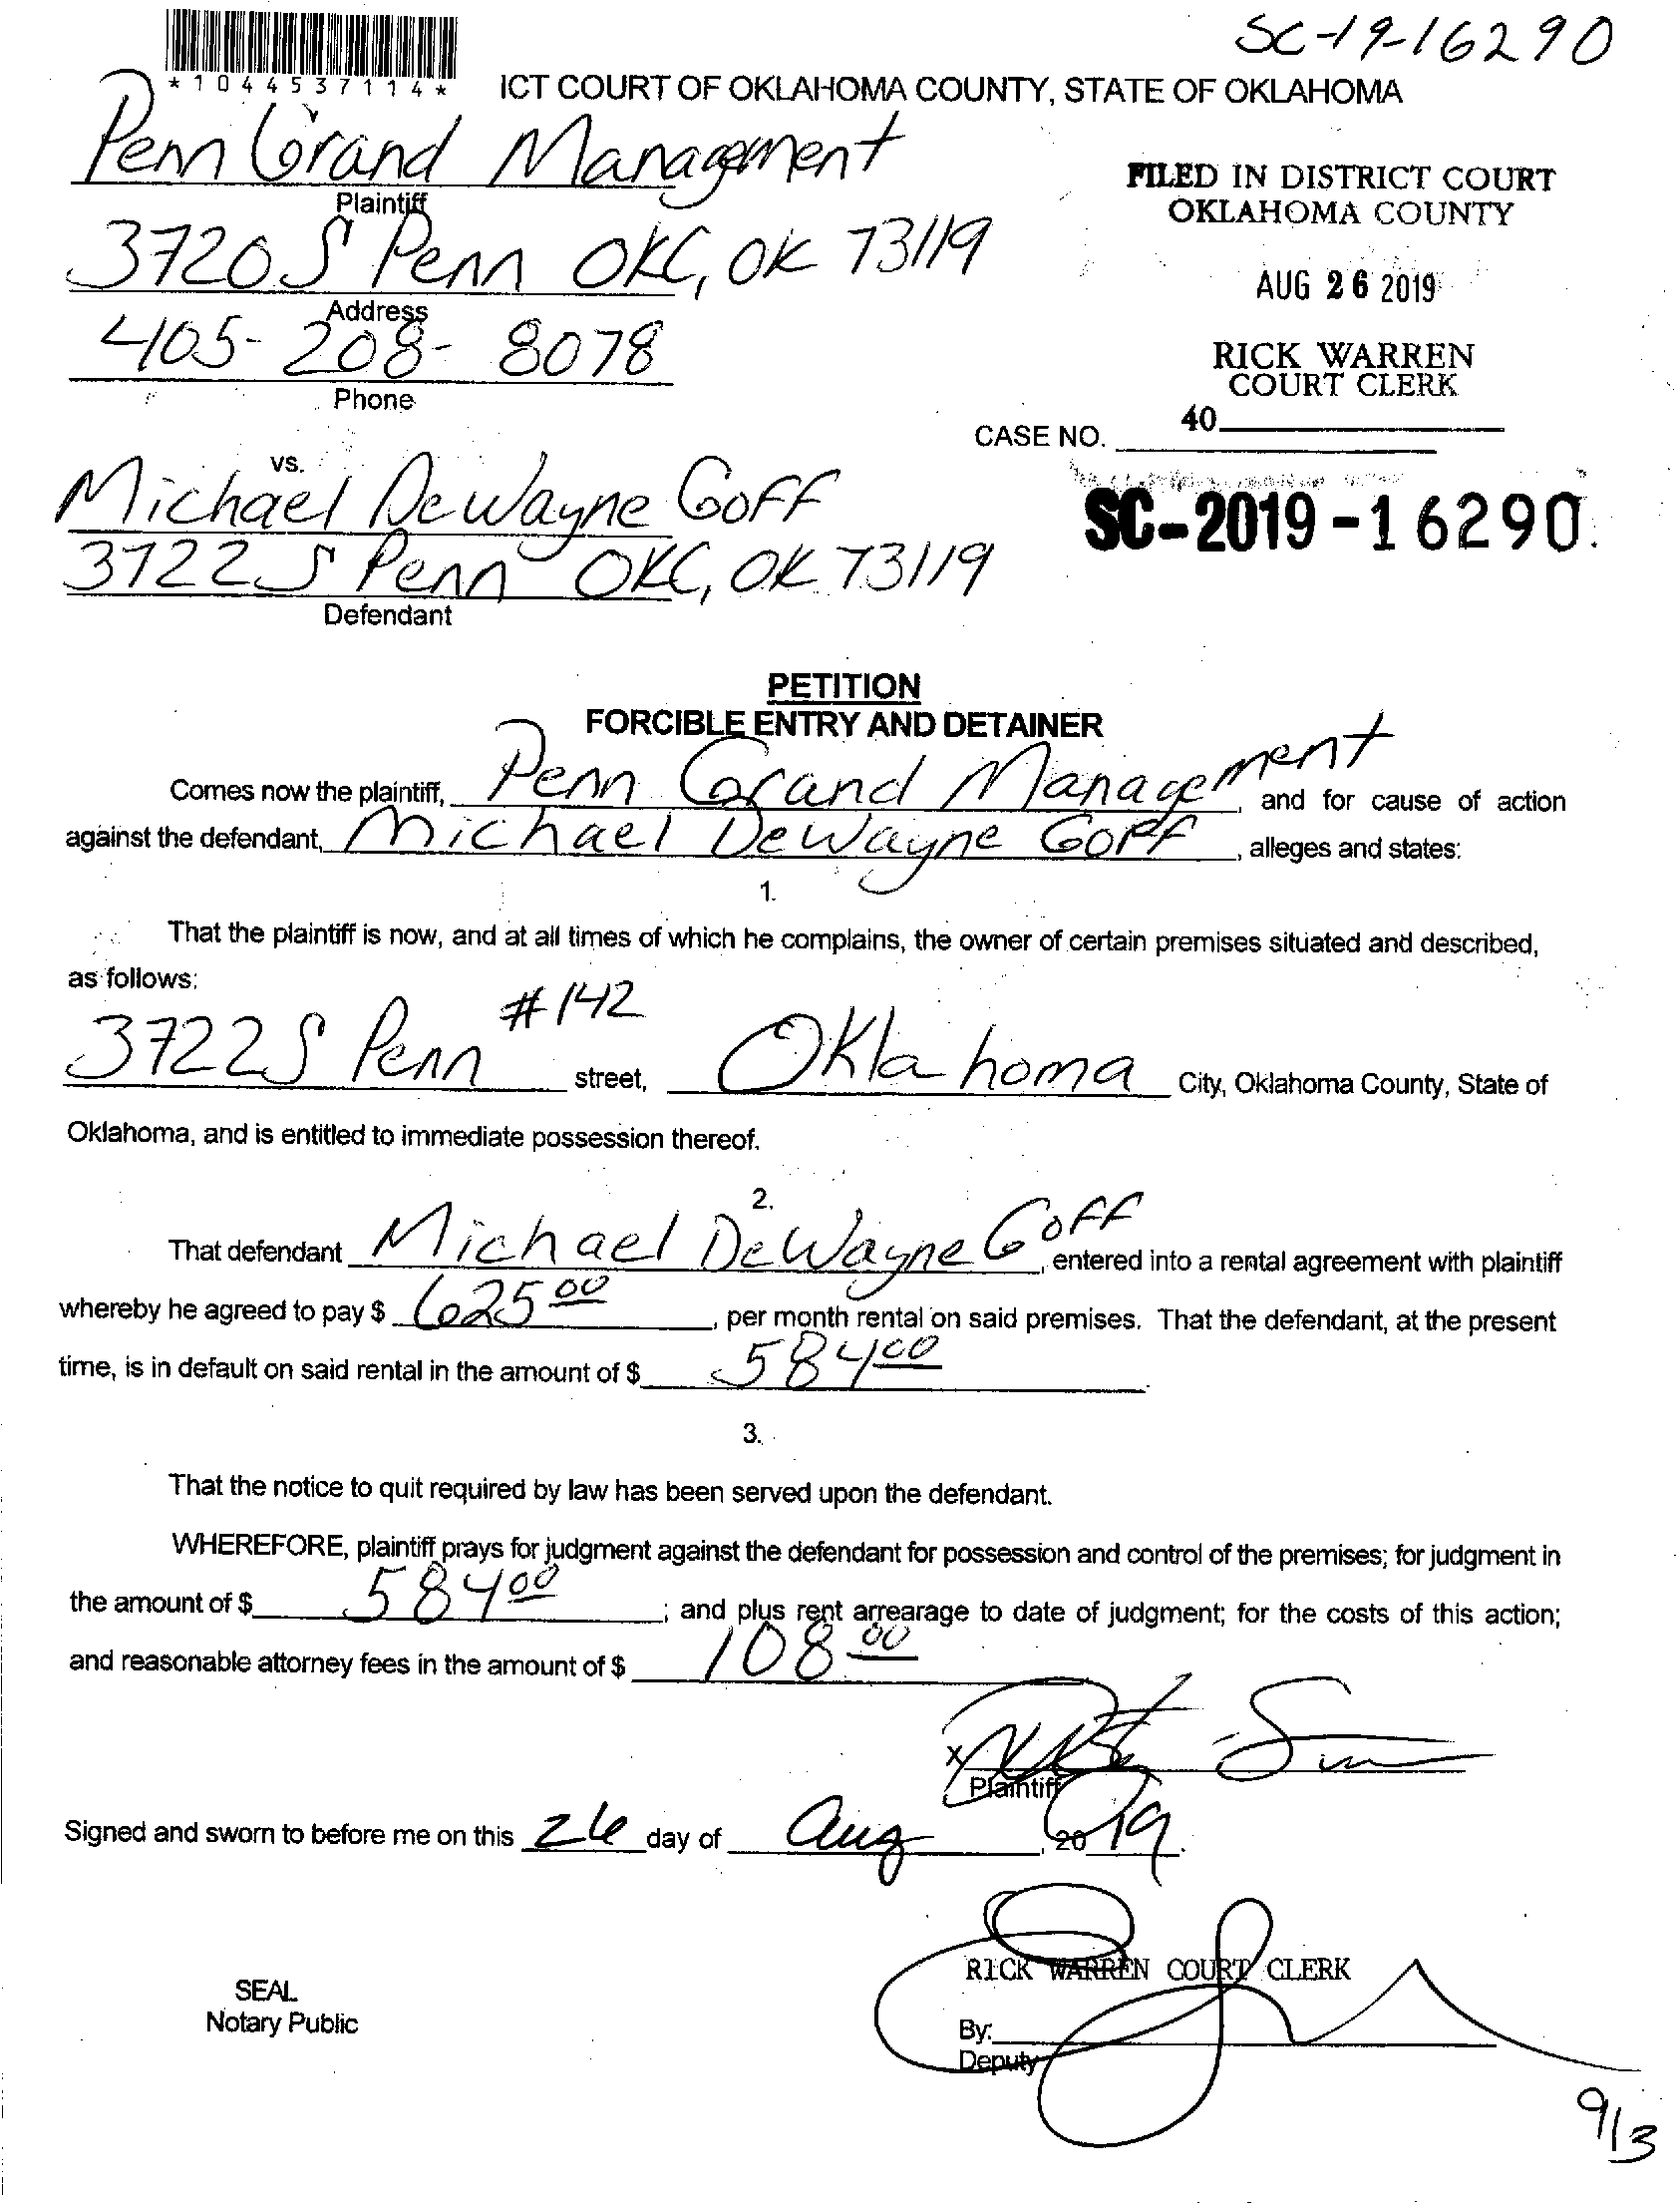 SC-19-16290
*1044537114*
ICT COURT OF OKLAHOMA COUNTY, STATE OF OKLAHOMA
Penn Grand Management
Plaintiff
FILED IN DISTRICT COURT
OKLAHOMA COUNTY
3720 S Penn OKC, OK 73119
Address
AUG 26 2019
405-208-8078
Phone
RICK WARREN
COURT CLERK
40
CASE NO.
vs.
Michael DeWayne Goff
SC-2019-16290
3722 S Penn OKC, OK 73119
Defendant
PETITION
FORCIBLE ENTRY AND DETAINER
Comes now the plaintiff, Penn Grand Management, and for cause of action
against the defendant, Michael DeWayne Goff, alleges and states:
1.
That the plaintiff is now, and at all times of which he complains, the owner of certain premises situated and described,
as follows:
3722 S Penn #142 street, Oklahoma City, Oklahoma County, State of
Oklahoma, and is entitled to immediate possession thereof.
2.
That defendant Michael DeWayne Goff, entered into a rental agreement with plaintiff
whereby he agreed to pay $ 625 00, per month rental on said premises. That the defendant, at the present
time, is in default on said rental in the amount of $ 584 00.
3.
That the notice to quit required by law has been served upon the defendant.
WHEREFORE, plaintiff prays for judgment against the defendant for possession and control of the premises; for judgment in
the amount of $ 584 00; and plus rent arrearage to date of judgment; for the costs of this action;
and reasonable attorney fees in the amount of $ 108 00
X
Plaintiff
Signed and sworn to before me on this 26 day of Aug, 2019.
RICK WARREN COURT CLERK
SEAL
Notary Public
By:
Deputy
9/3